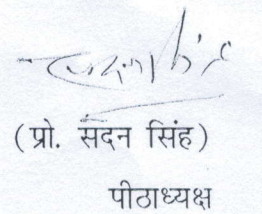 (प्रो. सदन सिंह)
पीठाध्यक्ष